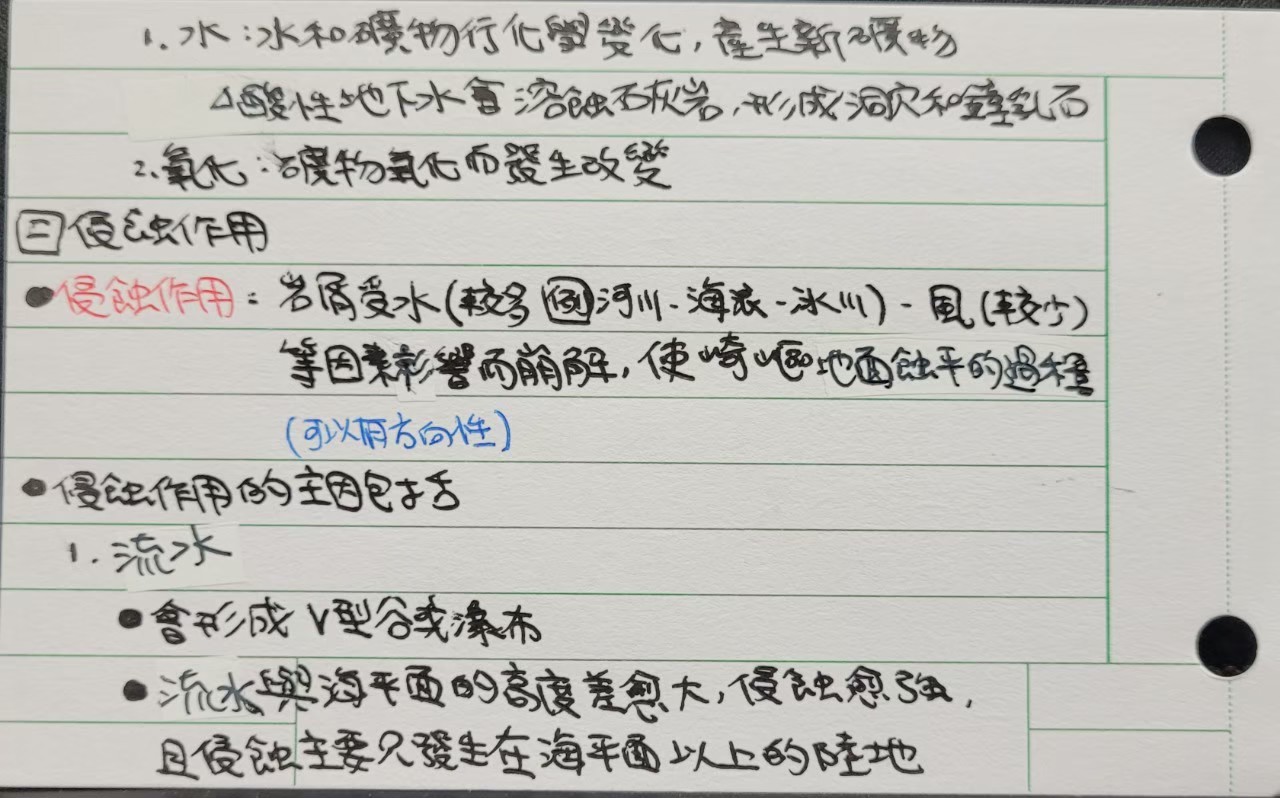 1. 水:水和礦物行化學變化,產生新礦物
△酸性地下水會溶蝕石灰岩,形成洞穴和鐘乳石
2. 氧化:礦物氧化而發生改變
三 侵蝕作用
●侵蝕作用:岩屑受水(較多 例 河川、海浪、冰川)、風(較少)
等因素影響而崩解,使崎嶇地面蝕平的過程
(可以有方向性)
●侵蝕作用的主因包括
1. 流水
●會形成V型谷或瀑布
●流水與海平面的高度差愈大,侵蝕愈強,
且侵蝕主要只發生在海平面以上的陸地